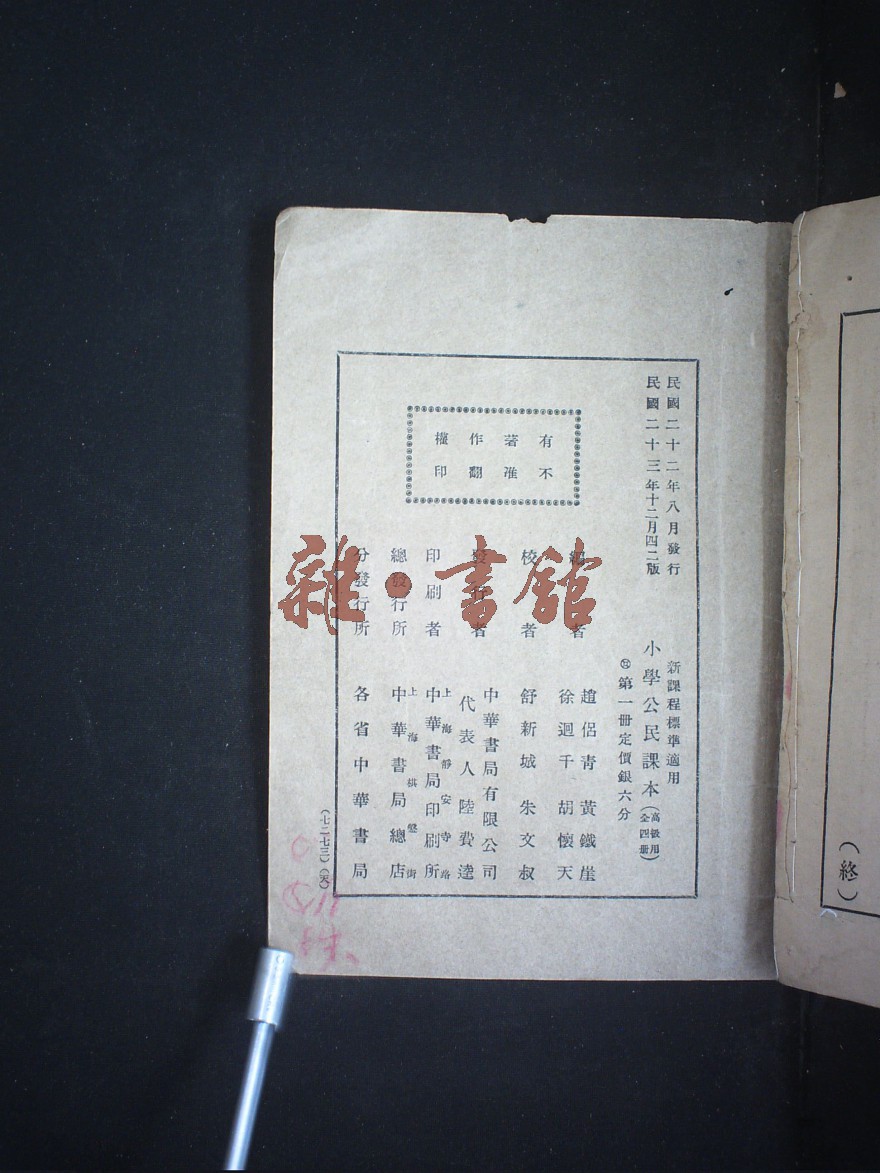 民國二十二年八月發行
民國二十三年十二月四二版
新課程標準適用
小學公民課本（高級用 全四册）
第一册定價銀六分
有著作權
不准翻印
編者 趙侶青 黃鐵崖
徐迥千 胡懷天
校者 舒新城 朱文叔
發行者 中華書局有限公司
代表人 陸費逵
印刷者 上海靜安寺路
中華書局印刷所
總發行所 上海棋盤街
中華書局總店
分發行所 各省中華書局
（七二七三）
（終）
雜·書館